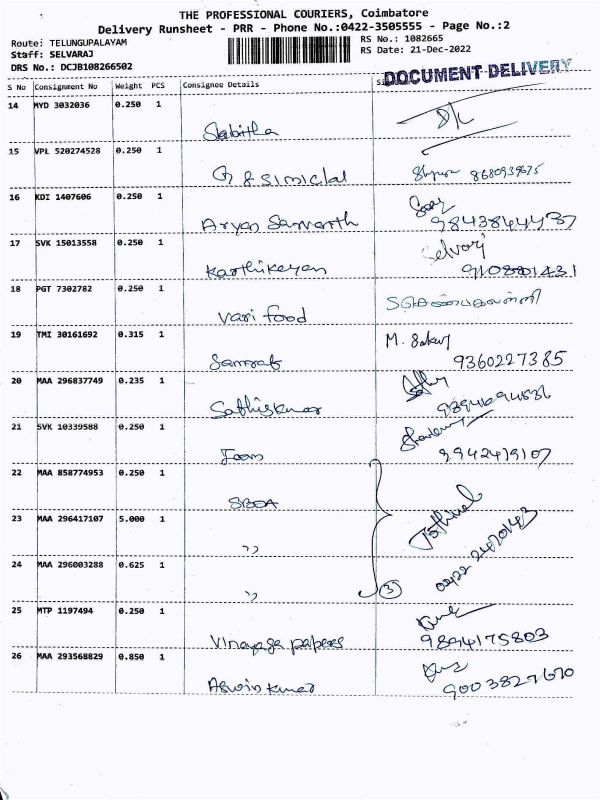 THE PROFESSIONAL COURIERS, Coimbatore
Delivery Runsheet - PRR - Phone No.:0422-3505555 - Page No.:2
Route: TELUNGUPALAYAM
RS No.: 1082665
Staff: SELVARAJ
RS Date: 21-Dec-2022
DRS No.: DCJB108266502
DOCUMENT DELIVERY
S No Consignment No Weight PCS Consignee Details
14 MYD 3032036 0.250 1
Sabitha
15 VPL 520274528 0.250 1
16 KDI 1407606 0.250 1
Aryan Samarth 9843844437
17 SVK 15013558 0.250 1
Selvaraj
Karthikeyan 9108801431
18 PGT 7302782 0.250 1
Vari food
19 TMI 30161692 0.315 1
M.
9360227385
20 MAA 296837749 0.235 1
Sathiskumar
21 SVK 10339588 0.250 1
22 MAA 858774953 0.250 1
SBOA
23 MAA 296417107 5.000 1
"
24 MAA 296003288 0.625 1
" 3
25 MTP 1197494 0.250 1
Vinayaga papers 9894175803
26 MAA 293568829 0.850 1
Aswin kumar 9003827670